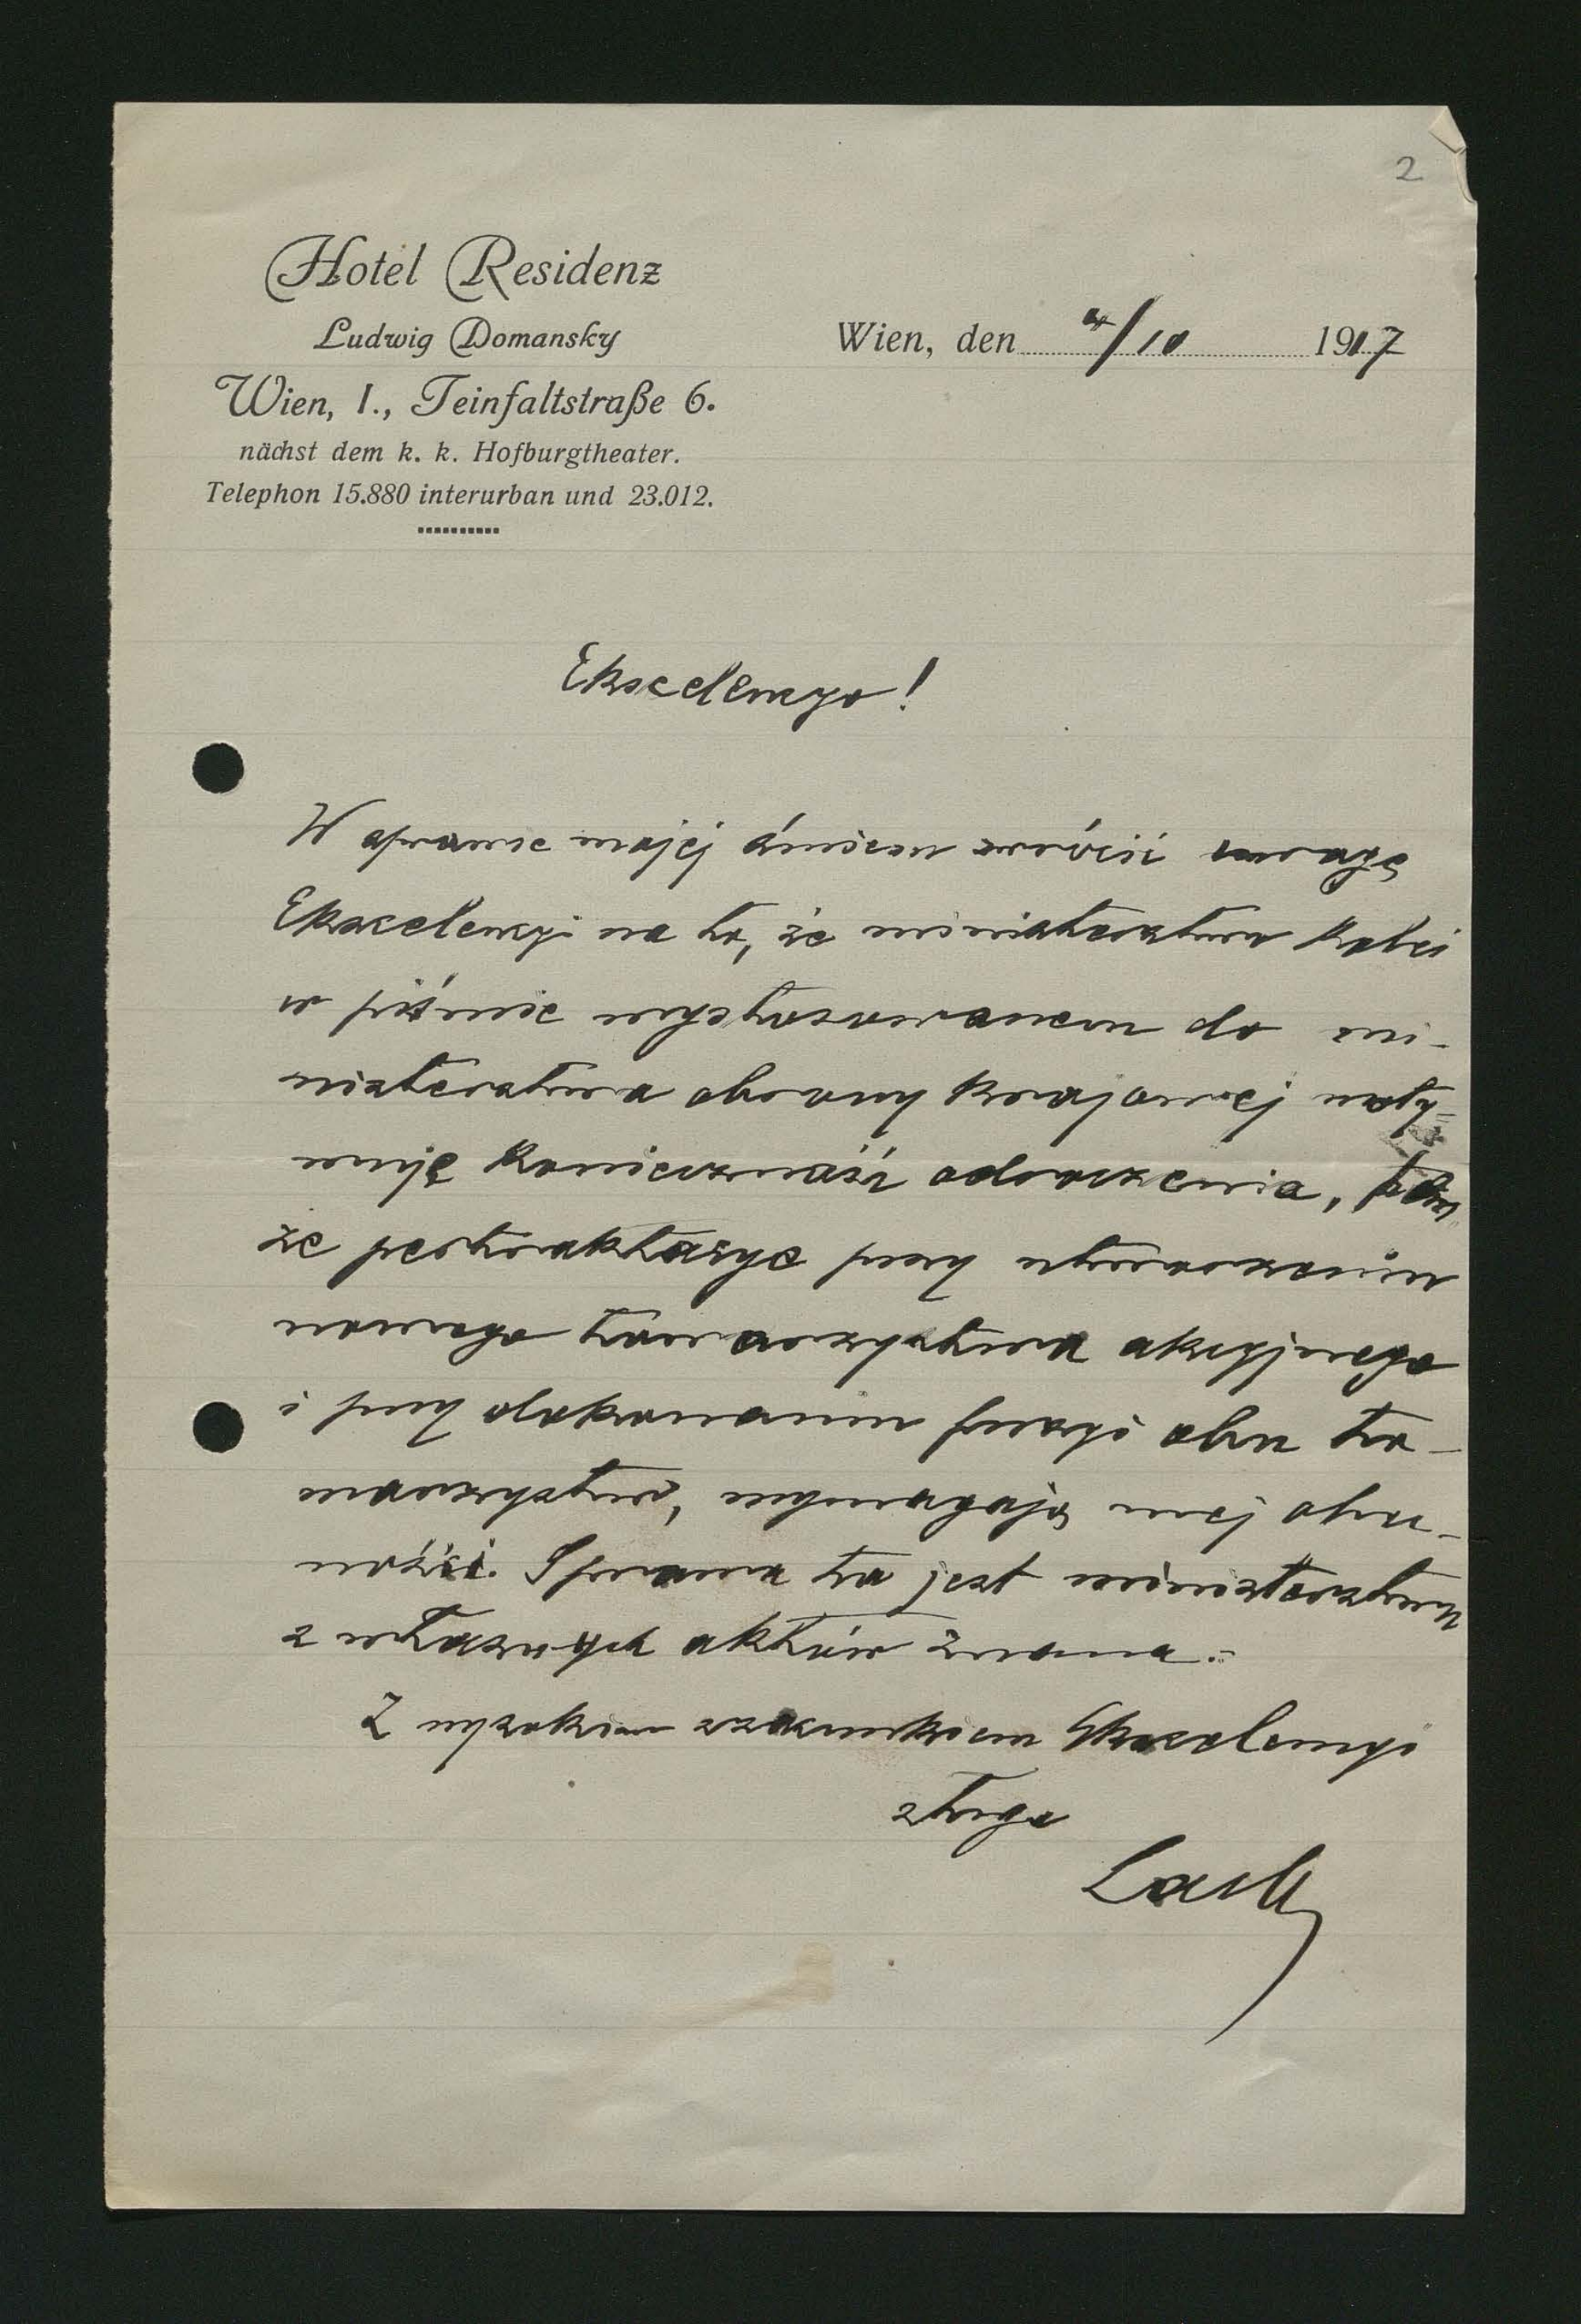 2
Hotel Residenz
Ludwig Domansky
Wien, I., Teinfaltstraße 6.
nächst dem k. k. Hofburgtheater.
Telephon 15.880 interurban und 23.012.
Wien, den 4/10 1917
Ekscelencyo!
W sprawie mojej śmiem zwrócić uwagę
Ekscelencyi na to, że ministerstwo kolei
w piśmie wystosowanem do mi-
nisterstwa obrony krajowej moty-
wuje konieczność odroczenia, tem
że pertraktacye przy utworzeniu
nowego towarzystwa akcyjnego
i przy dokonaniu fuzyi obu to-
warzystw, wymagają mej obec-
ności. Sprawa ta jest ministerstwu
z własnych aktów znana.-
Z wysokim szacunkiem Ekscelencyi
sługa